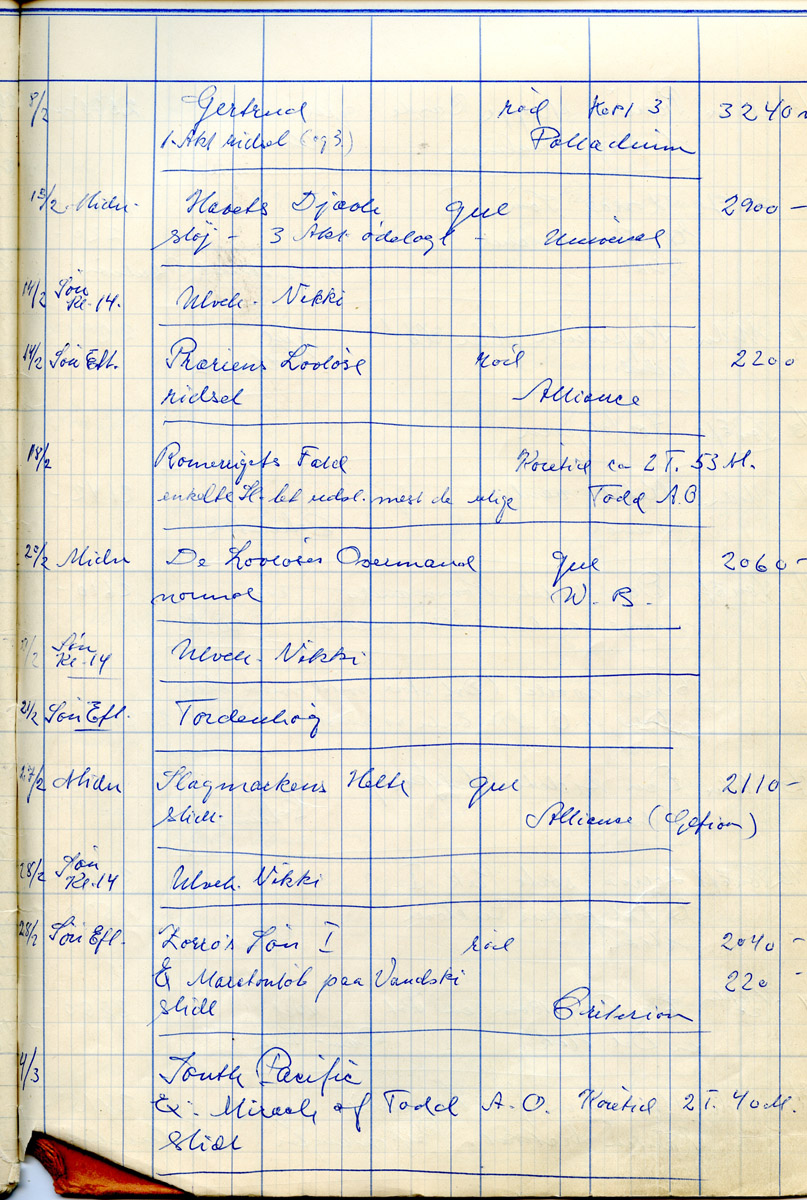 8/2 Gertrud rød Kopi 3 3240-
1. Akt ridset (og 3.) Palladium
13/2 Midn. Havets Djævle gul 2900-
støj - 3 Akt ødelagt - Universal
14/2 Søn Kl. 14. Ulveh. Nikki
14/2 Søn Eft. Præriens Lovløse rød 2200
ridset Alliance
18/2 Romerrigets Fald Køretid ca 2 T. 53 M.
enkelte let mest de Todd A.O
20/2 Midn De Lovløses Overmand gul 2060-
normal W. B.
Søn Kl. 14 Ulveh. Nikki
21/2 Søn Eft. Tordenhøg
27/2 Midn Slagmarkens Helte gul 2110-
slidt. Alliance (Gefion)
28/2 Søn Kl. 14 Ulveh. Nikki
28/2 Søn Eft. Zorro's Søn I rød 2040-
& Maratonløb paa Vandski 220-
slidt Criterion
4/3 South Pacific
Ex. Miracle of Todd A.O. Køretid 2 T. 40 M.
slidt